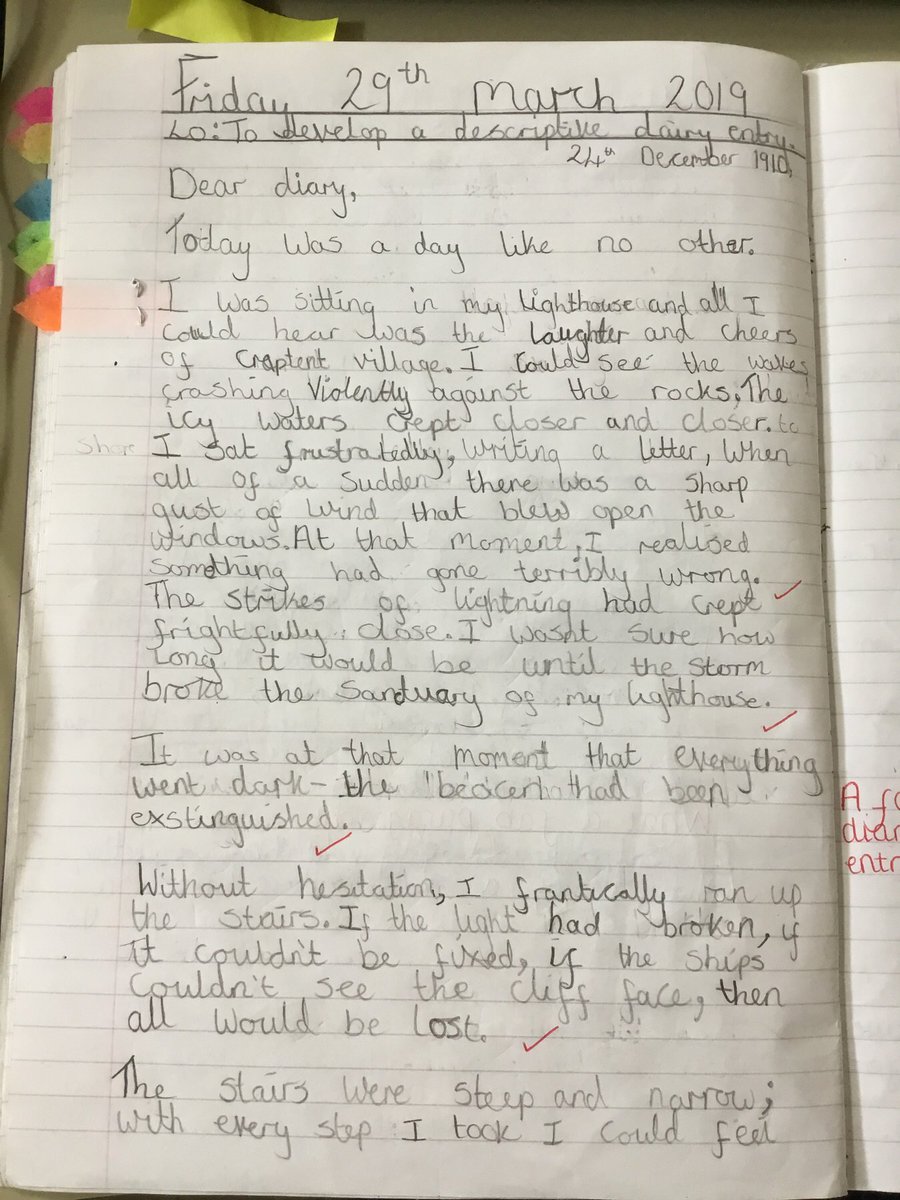 Friday 29th March 2019
LO: To develop a descriptive dairy entry.
24th December 1910,
Dear diary,
Today was a day like no other.
I was sitting in my lighthouse and all I
could hear was the laughter and cheers
of Craptent village. I could see the waves
crashing violently against the rocks, The
icy waters crept closer and closer. to
Shore I sat frustratedly, writing a letter, when
all of a sudden there was a sharp
gust of wind that blew open the
windows. At that moment, I realised
something had gone terribly wrong.
The strikes of lightning had crept
frightfully close. I wasnt sure how
long it would be until the storm
broke the sanduary of my lighthouse.
It was at that moment that everything
went dark - the had been
exstinguished.
Without hesitation, I frantically ran up
the stairs. If the light had broken, if
it couldn't be fixed, if the ships
couldn't see the cliff face, then
all would be lost.
The stairs were steep and narrow;
with every step I took I could feel
A fo
diar
entr